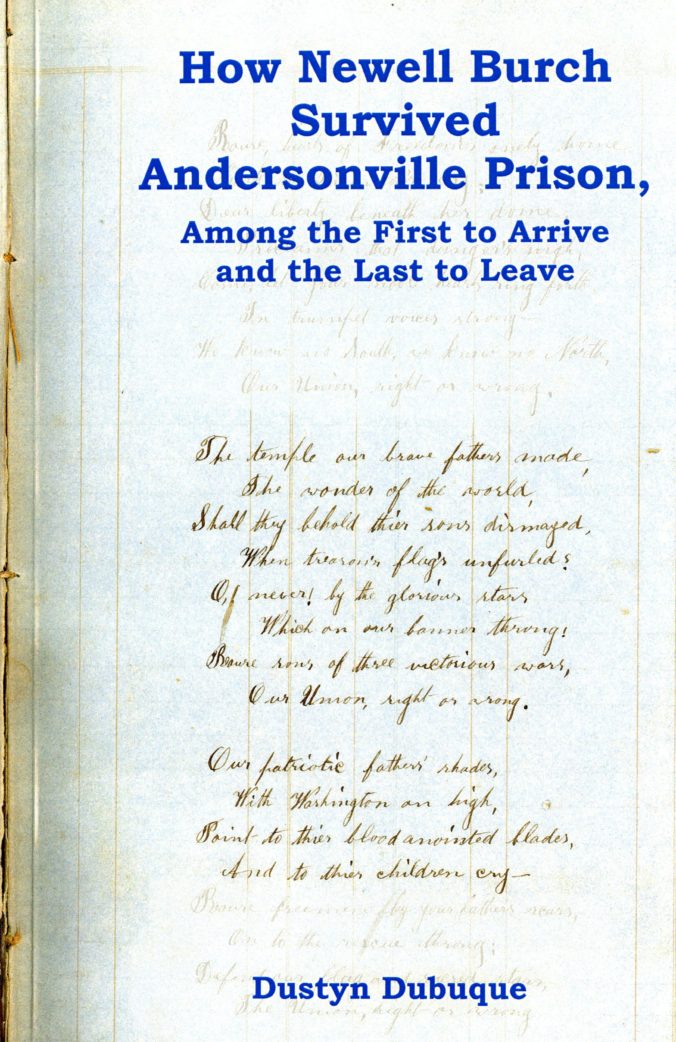 How Newell Burch
Survived
Andersonville Prison,
Among the First to Arrive
and the Last to Leave
of Freedom's only home
Dear liberty beneath her dome
danger's nigh,
ring forth,
In trumpet voices strong—
We know no South, we know no North,
Our Union, right or wrong.
The temple our brave fathers made,
The wonder of the world,
Shall they behold thier sons dismayed,
When treason's flag's unfurled?
Oh never! by the glorious stars
Which on our banner throng!
Rouse sons of three victorious wars,
Our Union, right or wrong.
Our patriotic fathers' shades,
With Washington on high,
Point to thier blood anointed blades,
And to thier children cry—
Rouse freemen by your fathers' scars,
On to the rescue throng;
Defend our
The Union, right or wrong
Dustyn Dubuque